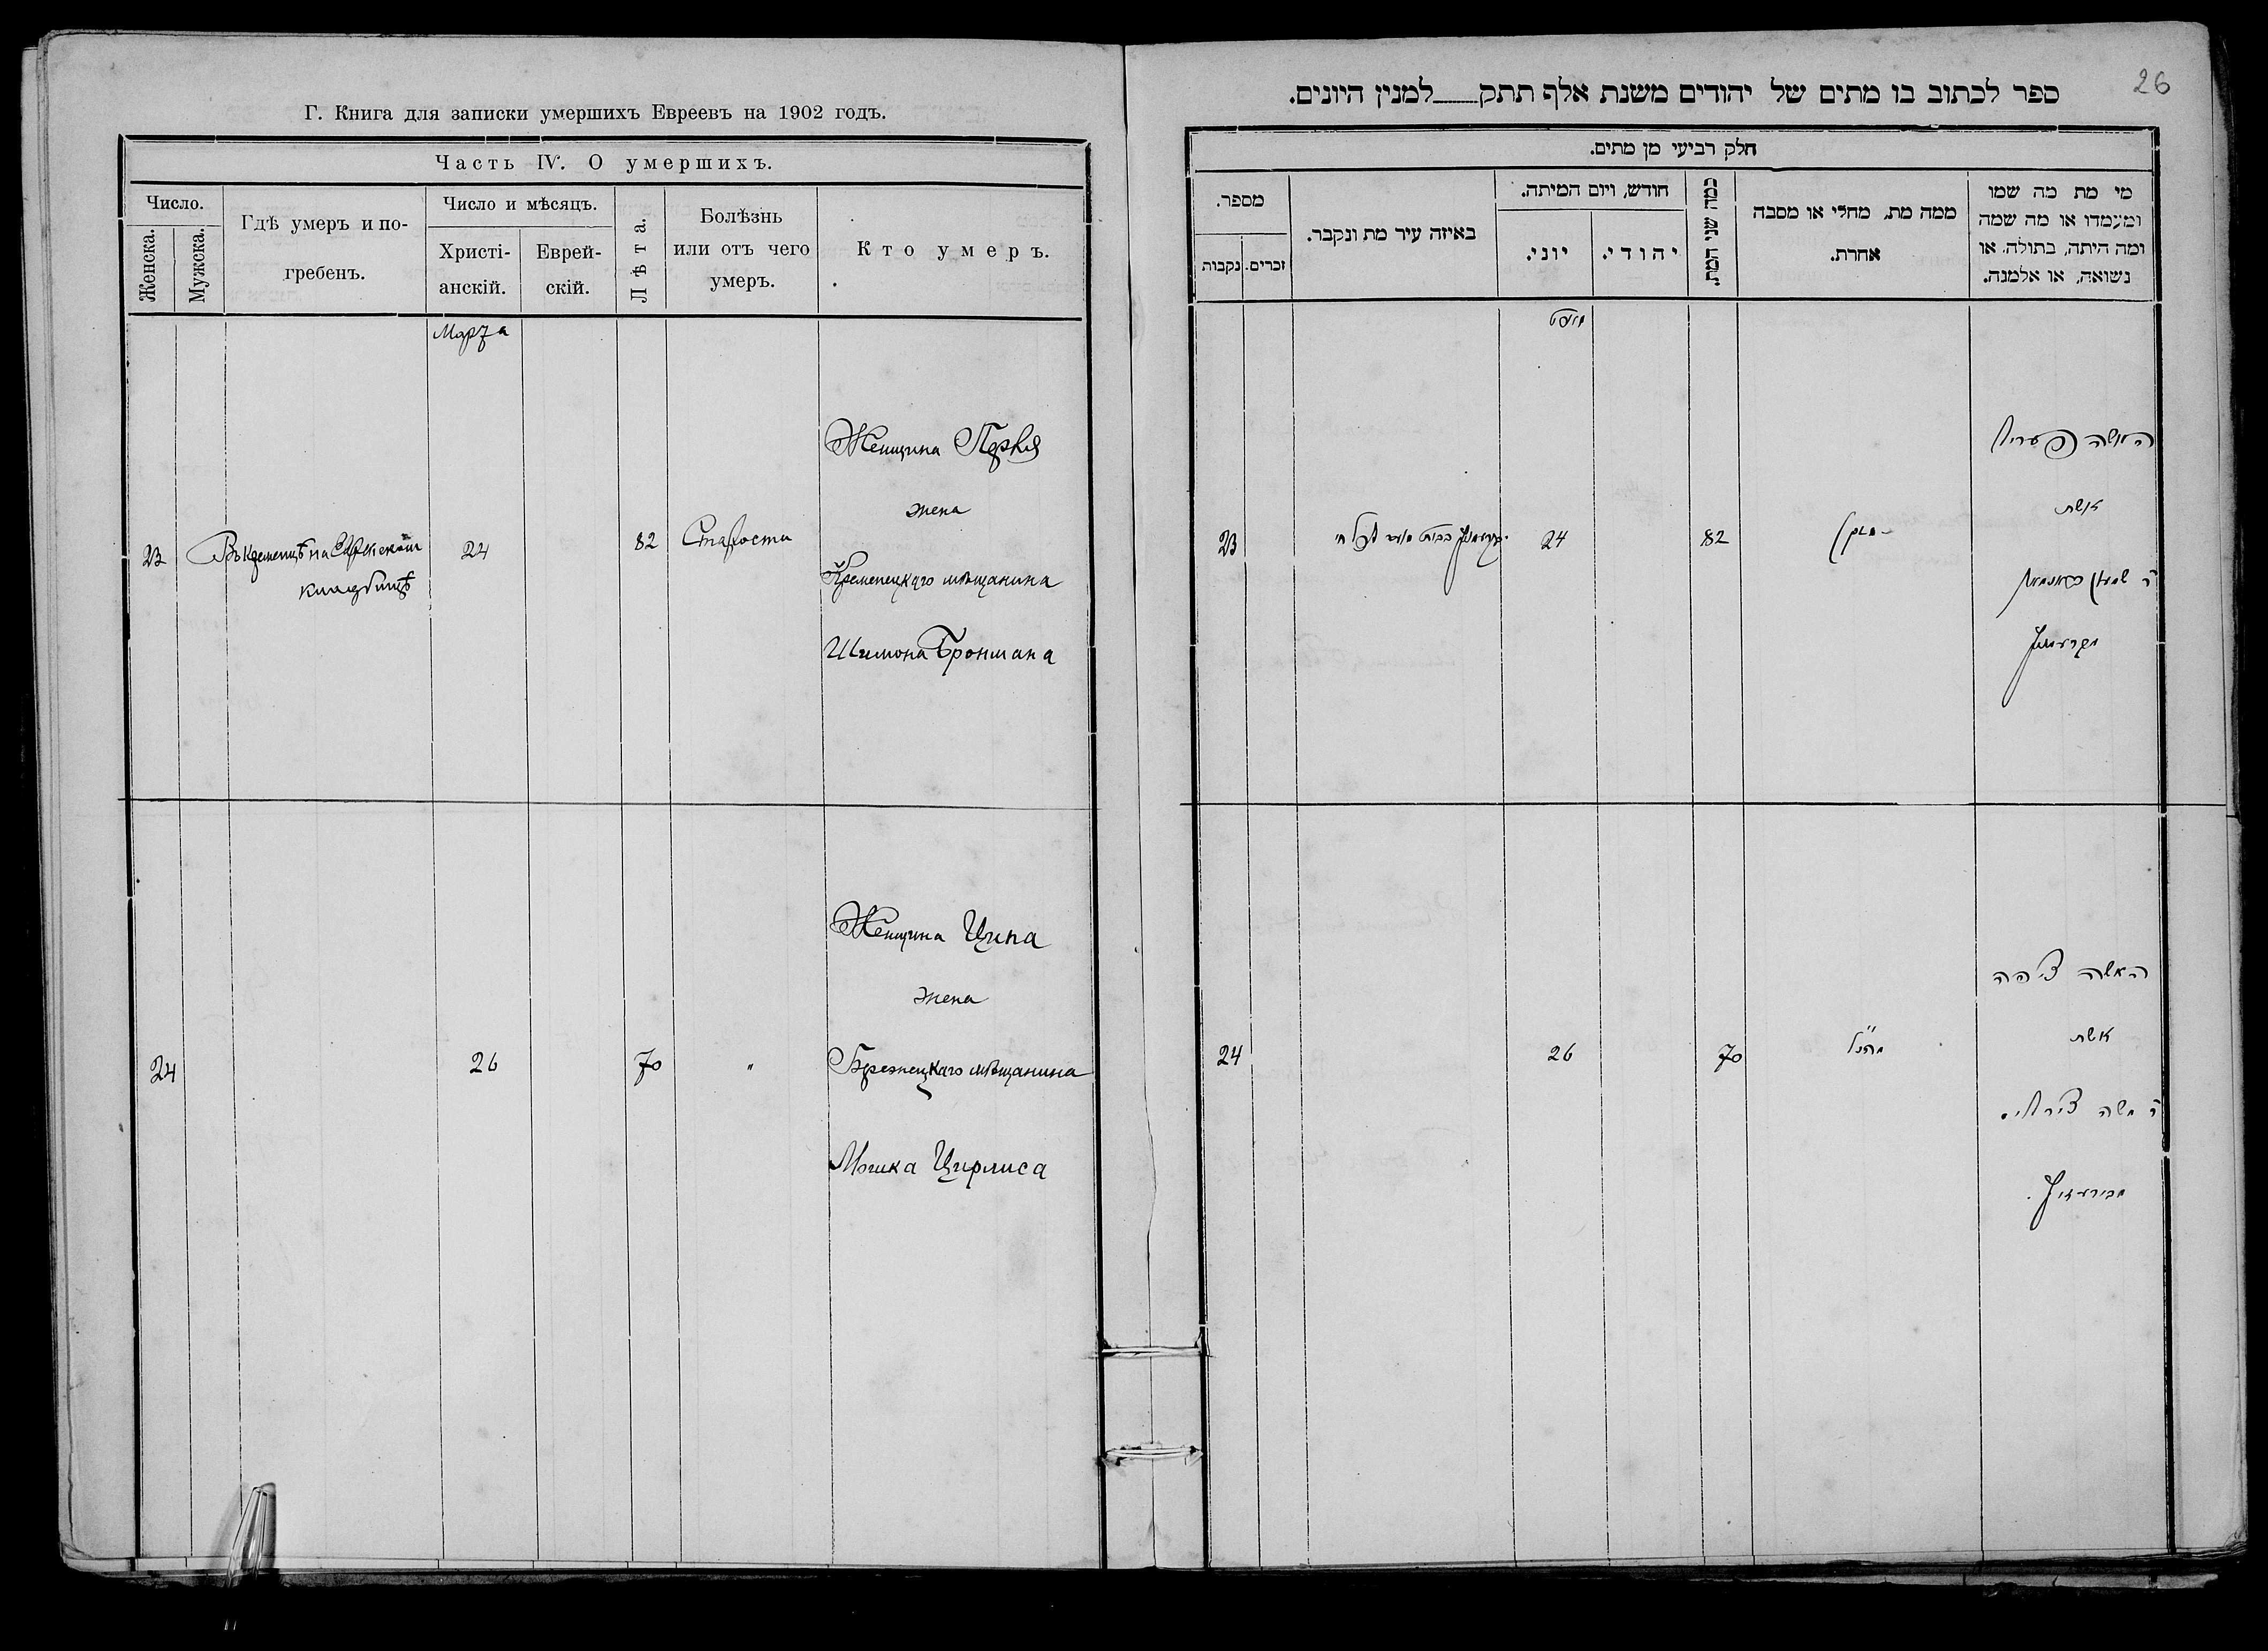 Г. Книга для записки умершихъ Евреевъ на 1902 годъ.
Часть IV. О умершихъ.
Число.
Женска.
Мужска.
Гдѣ умеръ и по-
гребенъ.
Число и мѣсяцъ.
Христі-
анскій.
Еврей-
скій.
Лѣта.
Болѣзнь
или отъ чего
умеръ.
Кто умеръ.
Марта
23
Въ Кременцѣ на Еврейском
кладбищѣ
24
82
Старости
Женщина Перля
жена
Кременецкаго мѣщанина
Шимона Бронмана
24
26
70
"
Женщина Ципа
жена
Бережецкаго мѣщанина
Мошка Цирлиса
26
ספר לכתוב בו מתים של יהודים משנת אלף תתק___למנין היונים.
חלק רביעי מן מתים.
מספר.
זכרים.
נקבות
באיזה עיר מת ונקבר.
חודש, ויום המיתה.
יוני.
יהודי.
כמה שני המת.
ממה מת, מחלי או מסבה
אחרת.
מי מת מה שמו
ומעמדו או מה שמה
ומה היתה, בתולה, או
נשואה, או אלמנה.
23
24
82
האשה פערל
אשת
ר שמעון
מקרעמניץ
24
26
70
מהנ"ל
האשה ציפה
אשת
ר משה צירליס